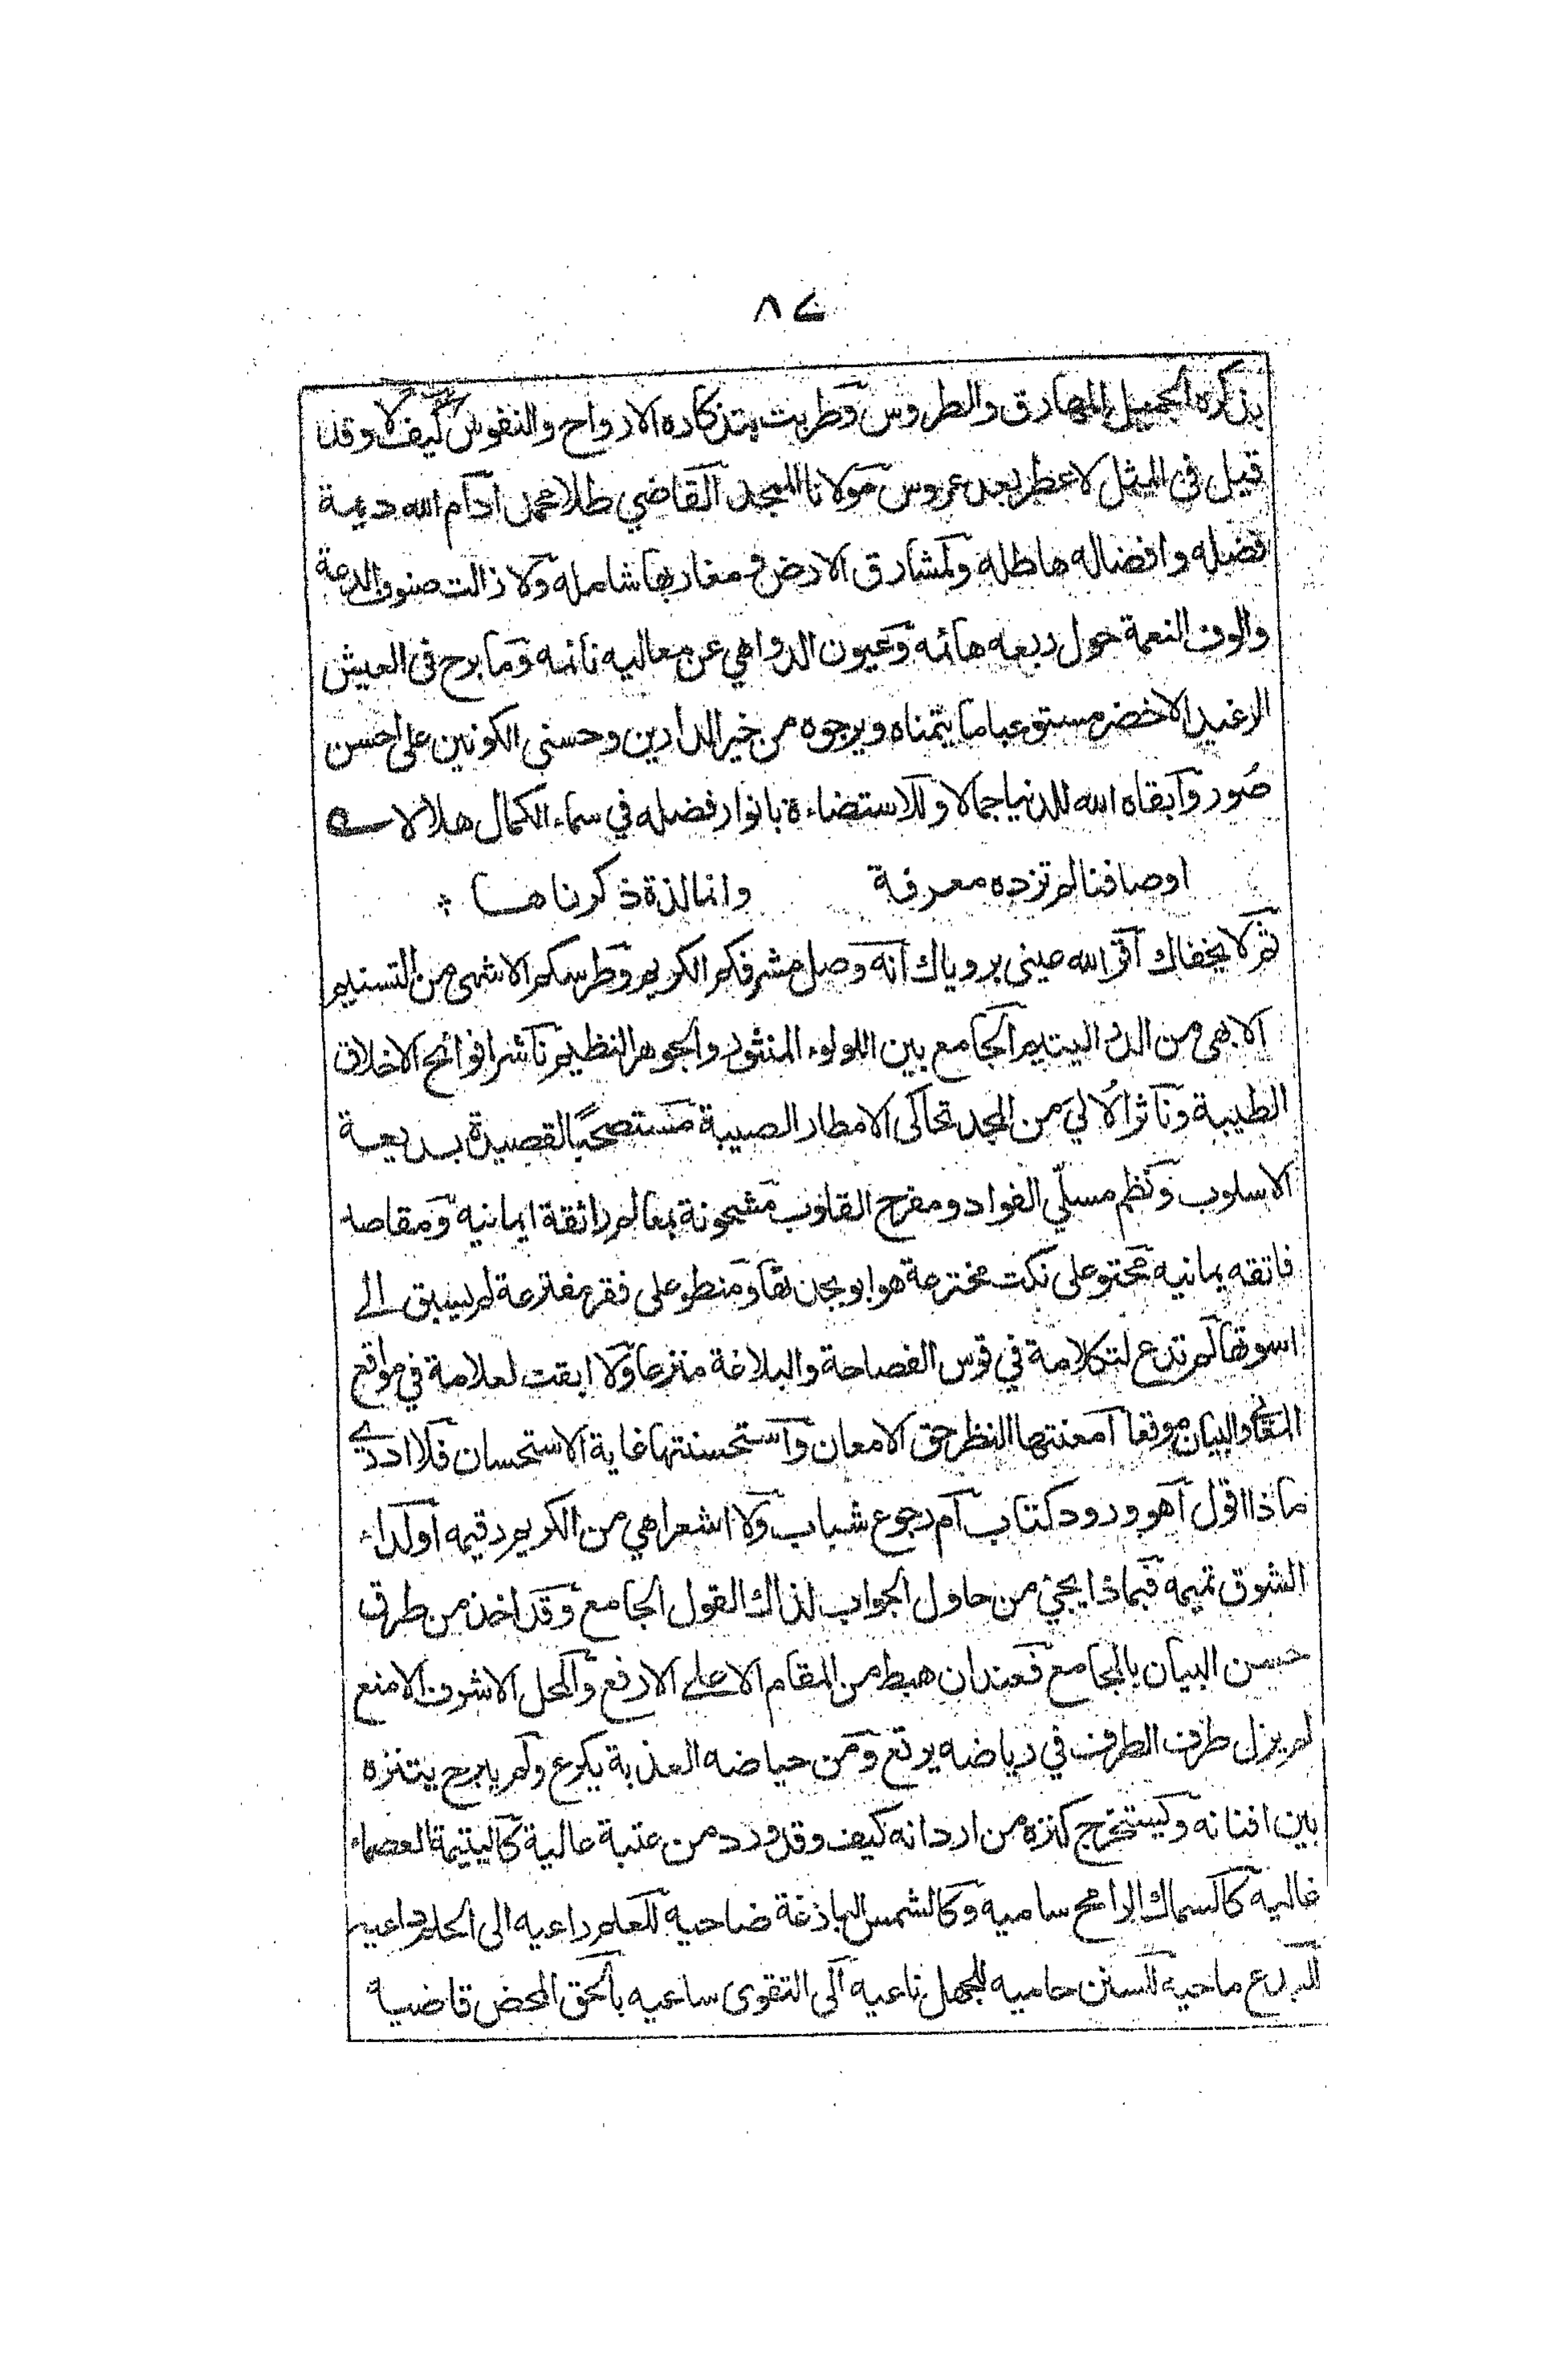 ٨٤
بذكره الجميل المهارق والطروس وطربت بتذكاره الارواح والنفوس كيف لا وقد
قيل في المثل لا عطر بعد عروس مولانا المجد القاضي طلا محمد ادام الله ديمة
فضله وافضاله هاطله ولمشارق الارض و مغاربها شامله ولا زالت صنوف الدعة
والوف النعمة حول ربعه هائمه وعيون الدواهي عن معاليه نائمه وما برح في العيش
الرغيد الاخضر مستوعبا ما يتمناه ويرجوه من خير الدارين وحسنى الكونين على احسن
صور وابقاه الله للدنيا جمالا وللاستضاءة بانوار فضله في سماء الكمال هلالا
اوصافنا لم تزده معرفة وانما لذة ذكرناها
ثم لا يخفاك اقر الله عيني برؤياك انه وصل مشرفكم الكريم وطرسكم الاشهى من التسنيم
الابهى من الدر اليتيم الجامع بين اللولوء المنثور والجوهر النظيم ناشرا فوائح الاخلاق
الطيبة وناثرا لآلي من المجد تحاكى الامطار الصيبة مستصحبا لقصيدة بديعة
الاسلوب ونظم مسلي الفواد ومفرح القلوب مشحونة بمعالم رائقة ايمانيه ومقاصد
فائقه يمانيه محتو على نكت مخترعة هو ابو بجدتها ومنطو على فقر مفترعة لم يسبق الى
اسوتها لم تدع لتكلامة في قوس الفصاحة والبلاغة منزعا ولا ابقت لعلامة في مواقع
المعاني والبيان موقعا امعنتها النظر حق الامعان واستحسنتها غاية الاستحسان فلا ادري
ماذا اقول اهو ورود كتاب ام رجوع شباب ولا اشعر اهي من الكريم رقيمه او لداء
الشوق تميمه فبماذا يجئ من حاول الجواب لذاك القول الجامع وقد اخذ من طرق
حسن البيان بالمجامع فعند ان هبط من المقام الاعلى الارفع والمحل الاشرف الامنع
لم يزل طرف الطرف في رياضه يرتع ومن حياضه العذبة يكرع ولم يبرح يتنزه
بين افنانه ويستخرج كنزه من اردانه كيف وقد ورد من عتبة عالية كاليتيمة العصماء
غاليه كالسماك الرامح ساميه وكالشمس البازغة ضاحيه للعلم راعيه الى الحلم داعيه
للبدع ماحيه للسنن حاميه للجهل ناعيه الى التقوى ساعيه بالحق المحض قاضيه